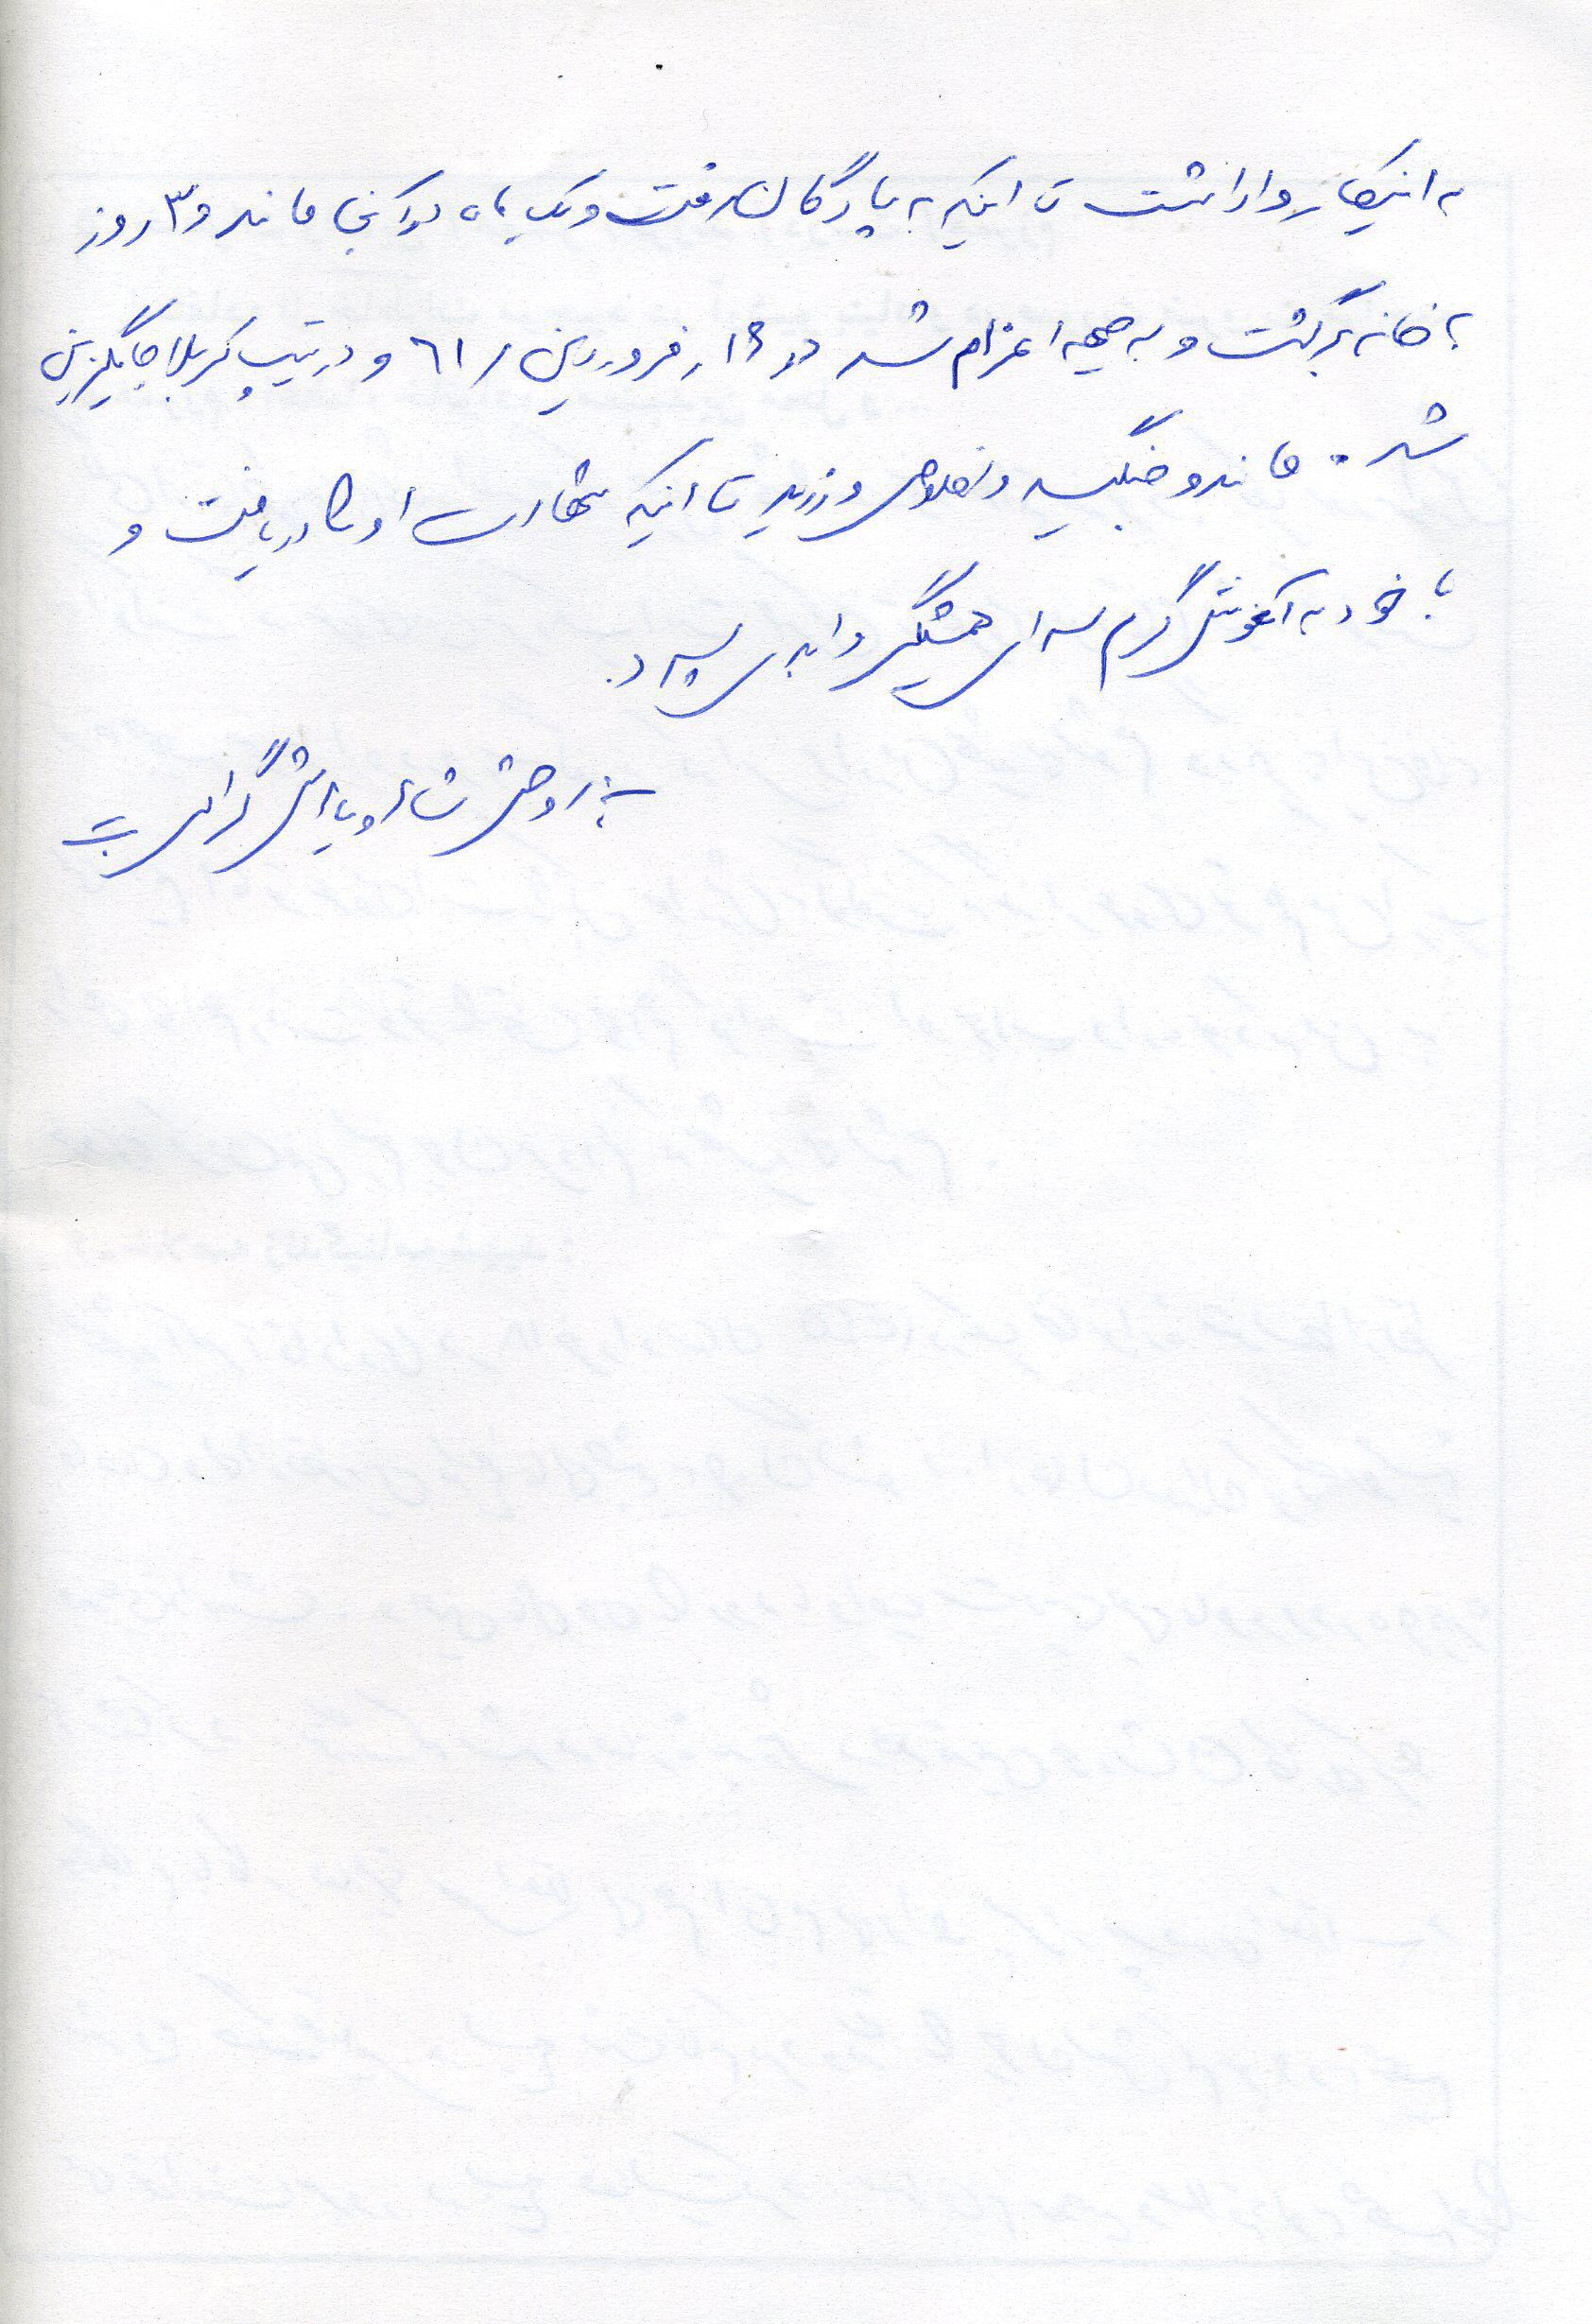 به اینکار واداشت تا اینکه به پادگان رفت و یک ماه در آنجا ماند و ۳ روز
به خانه برگشت و به جبهه اعزام شد در ۱۶ ر فروردین ر ۶۱ و در تیپ کربلا جایگزین
شد. ماند و جنگید و اخلاص ورزید تا اینکه شهادت او را دریافت و
با خود به آغوش گرم همیشگی و ابدی سپرد.
روحش شاد و یادش گرامی